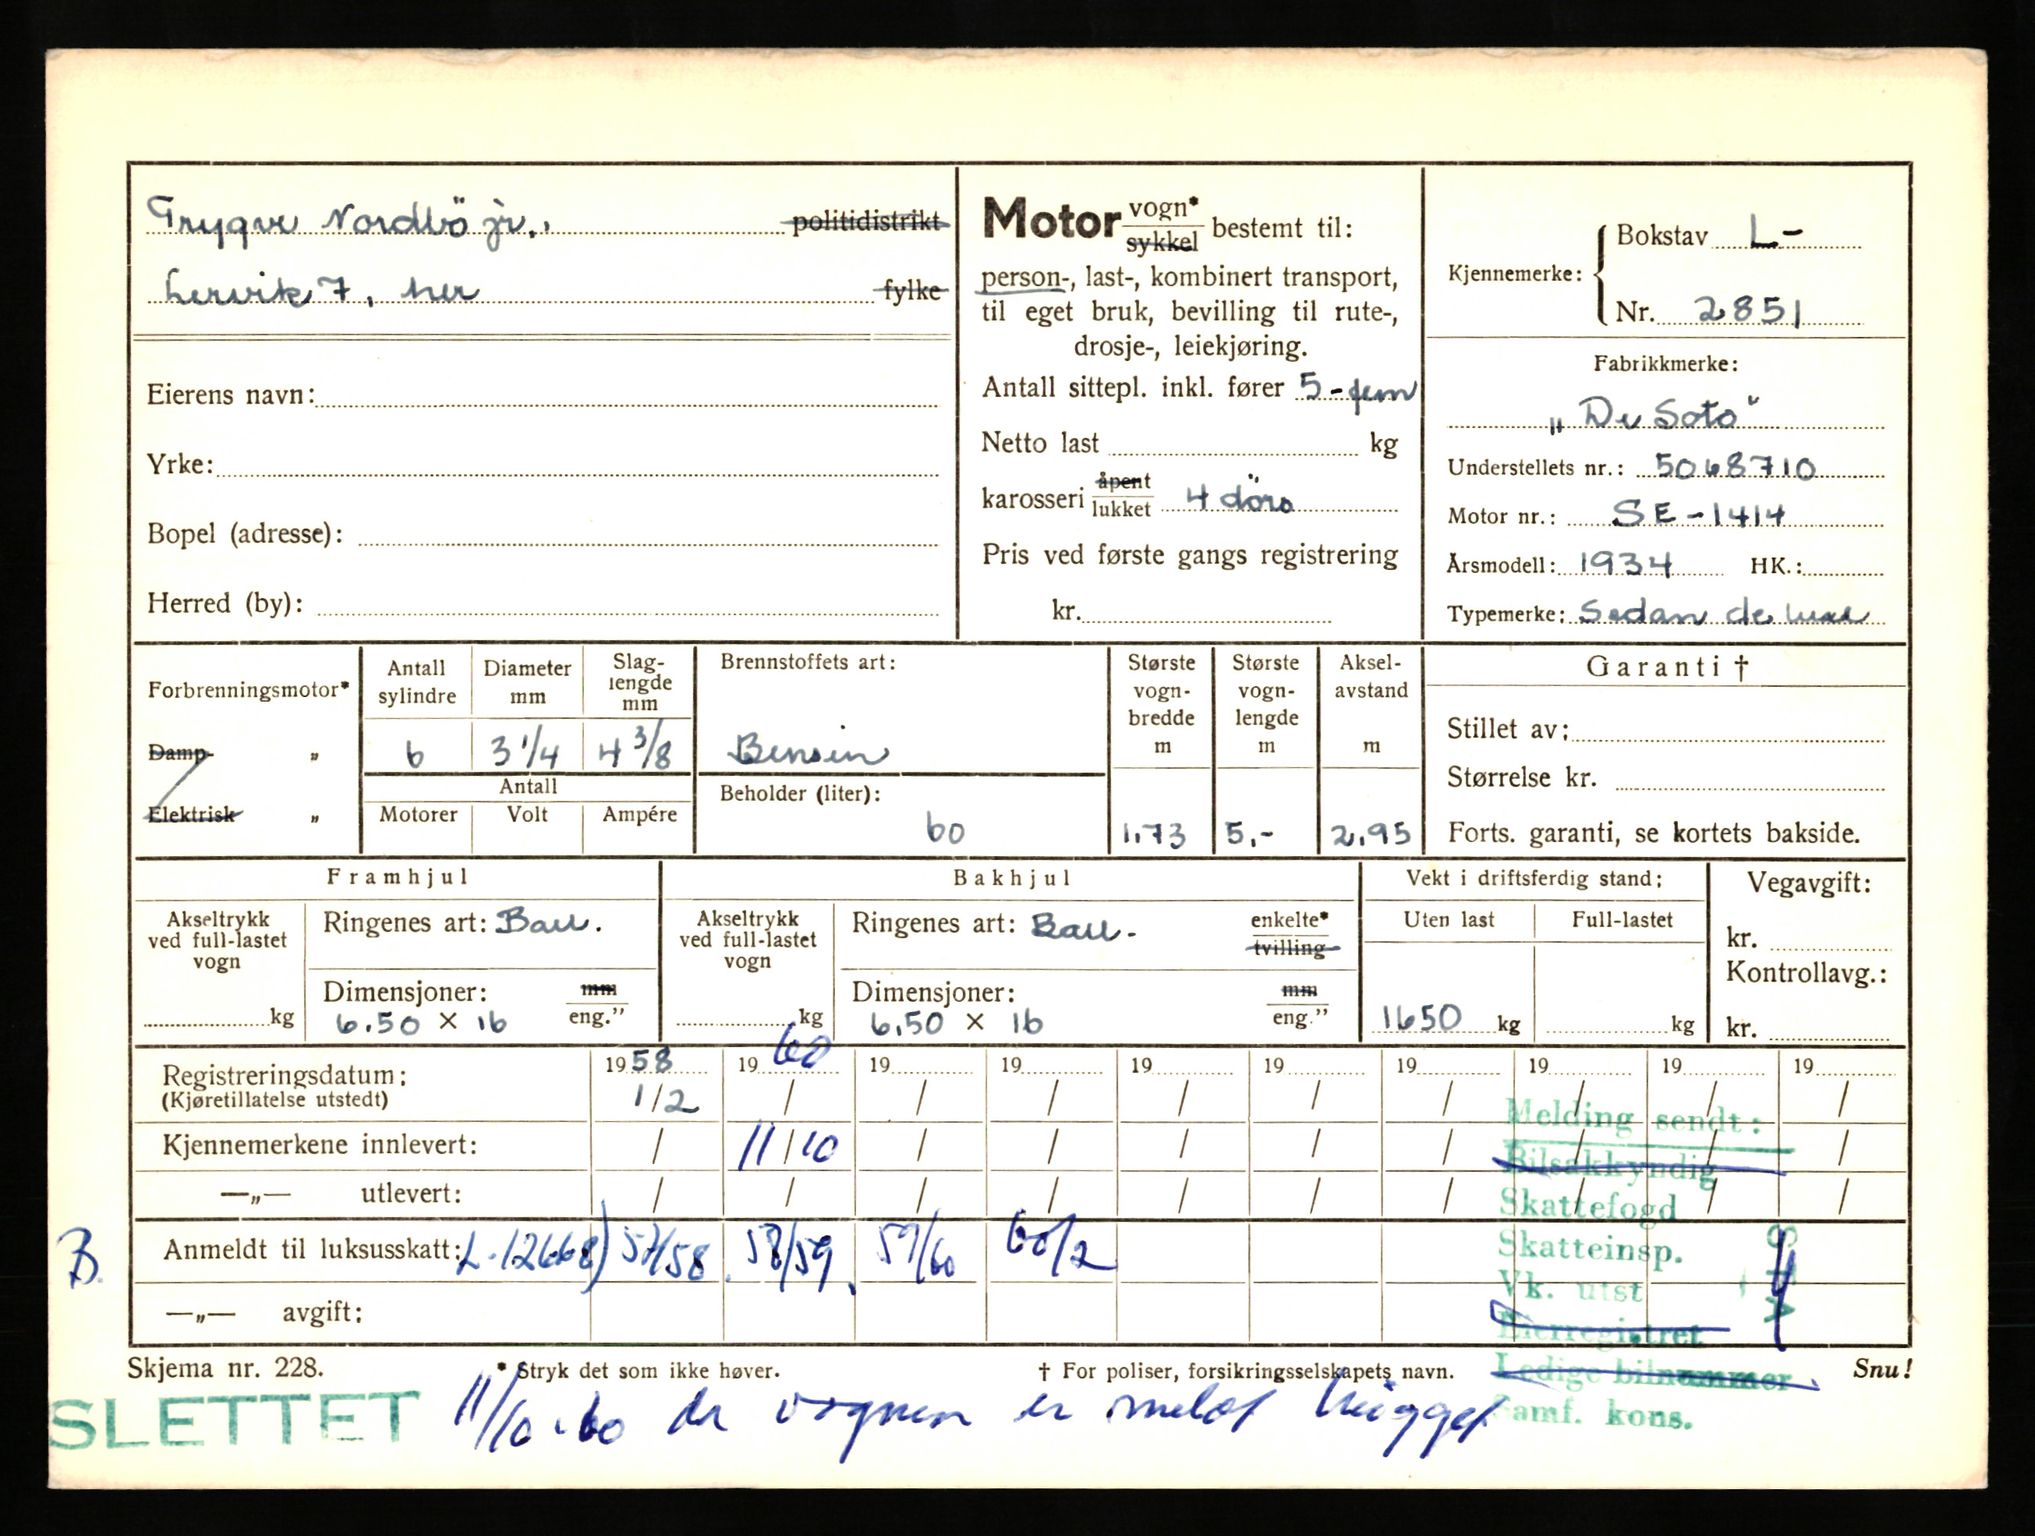 Trygve Nordbö jr., politidistrikt
Lervik 7, her fylke
Eierens navn:
Yrke:
Bopel (adresse):
Herred (by):
Motor vogn* sykkel bestemt til:
person-, last-, kombinert transport,
til eget bruk, bevilling til rute-,
drosje-, leiekjøring.
Antall sittepl. inkl. fører 5 - fem
Netto last kg
karosseri åpent lukket 4 dörs
Pris ved første gangs registrering
kr.
Kjennemerke: Bokstav L-
Nr. 2851
Fabrikkmerke:
„De Soto"
Understellets nr.: 5068710
Motor nr.: SE-1414
Årsmodell: 1934 HK.:
Typemerke: Sedan de luxe
Forbrenningsmotor*
Damp „
Elektrisk „
Antall sylindre
Diameter mm
Slag- lengde mm
6 3 1/4 4 3/8
Antall
Motorer Volt Ampére
Brennstoffets art:
Bensin
Beholder (liter):
60
Største vogn- bredde m
1.73
Største vogn- lengde m
5,-
Aksel- avstand m
2.95
Garanti †
Stillet av:
Størrelse kr.
Forts. garanti, se kortets bakside.
Framhjul
Akseltrykk ved full-lastet vogn
kg
Ringenes art: Ball.
Dimensjoner: mm
6.50 × 16 eng."
Bakhjul
Akseltrykk ved full-lastet vogn
kg
Ringenes art: Ball. enkelte* tvilling
Dimensjoner: mm
6.50 × 16 eng."
Vekt i driftsferdig stand:
Uten last Full-lastet
1650 kg kg
Vegavgift:
kr.
Kontrollavg.:
kr.
Registreringsdatum: 1958 1960 19 19 19 19 19 19 19 19
(Kjøretillatelse utstedt) 1/2 / / / / / / / / /
Kjennemerkene innlevert: / 11/10 / / / / / / / /
—„— utlevert: / / / / / / / / / /
B. Anmeldt til luksusskatt: L-12668) 57/58. 58/59. 59/60 60/2
—„— avgift:
Melding sendt:
Bilsakkyndig
Skattefogd
Skatteinsp.
Vk. utst
Eierregistret
Ledige bilnummer
Samf. kons.
Skjema nr. 228. * Stryk det som ikke høver. † For poliser, forsikringsselskapets navn. Snu!
SLETTET 11/10-60 da vognen er meldt hugget